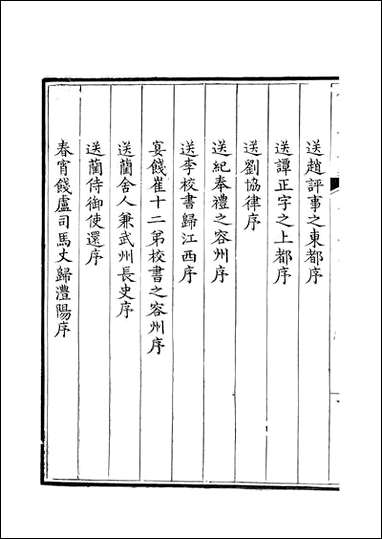 送趙評事之東都序
送譚正字之上都序
送劉協律序
送紀奉禮之容州序
送李校書歸江西序
宴餞崔十二弟校書之容州序
送蘭舍人兼武州長史序
送蘭侍御使還序
春宵餞盧司馬丈歸澧陽序